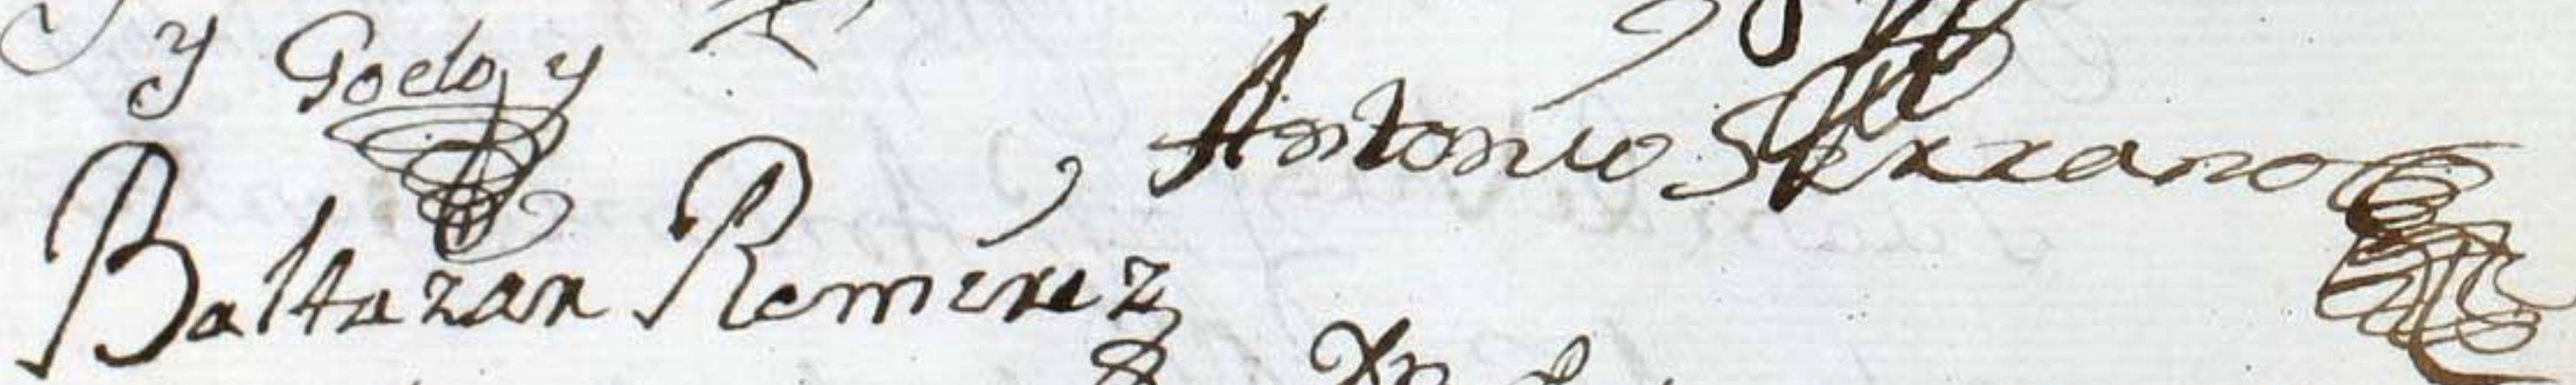 y Godoy
Antonio Serrano
Baltazar Ramirez